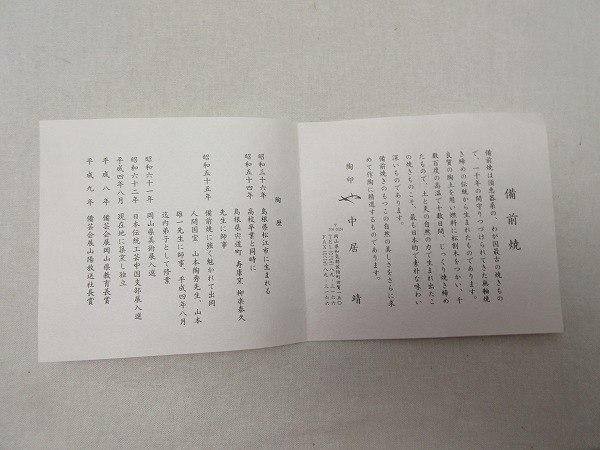 備前焼
備前焼は須恵器系の、わが国最古の焼きもの
で、一千年の間守りつづけられてきた無釉焼
き締めの伝統から生まれたものであります。
良質の陶土を用い燃料に松割木をつかい、千
数百度の高温で十数日間、じっくり焼き締め
たもので、土と炎の自然の力で生まれ出たこ
の焼きものこそ、最も日本的で素朴な味わい
深いものであります。
備前焼のもつこの自然の美しさをさらに求
めて作陶に精進するものであります。
陶印 中居靖
陶歴
昭和三十六年 島根県松江市に生まれる
昭和五十四年 高校卒業と同時に
島根県宍道町 寿康窯 柳楽泰久
先生に師事
昭和五十五年 備前焼に強く魅かれて出岡
人間国宝 山本陶秀先生、山本
雄一先生に師事、平成四年八月
迄内弟子として修業
昭和六十一年 岡山県美術展入選
昭和六十二年 日本伝統工芸中国支部展入選
平成四年八月 現在地に築窯し独立
平成八年 備芸会展岡山県教育長賞
平成九年 備芸会展山陽放送社長賞